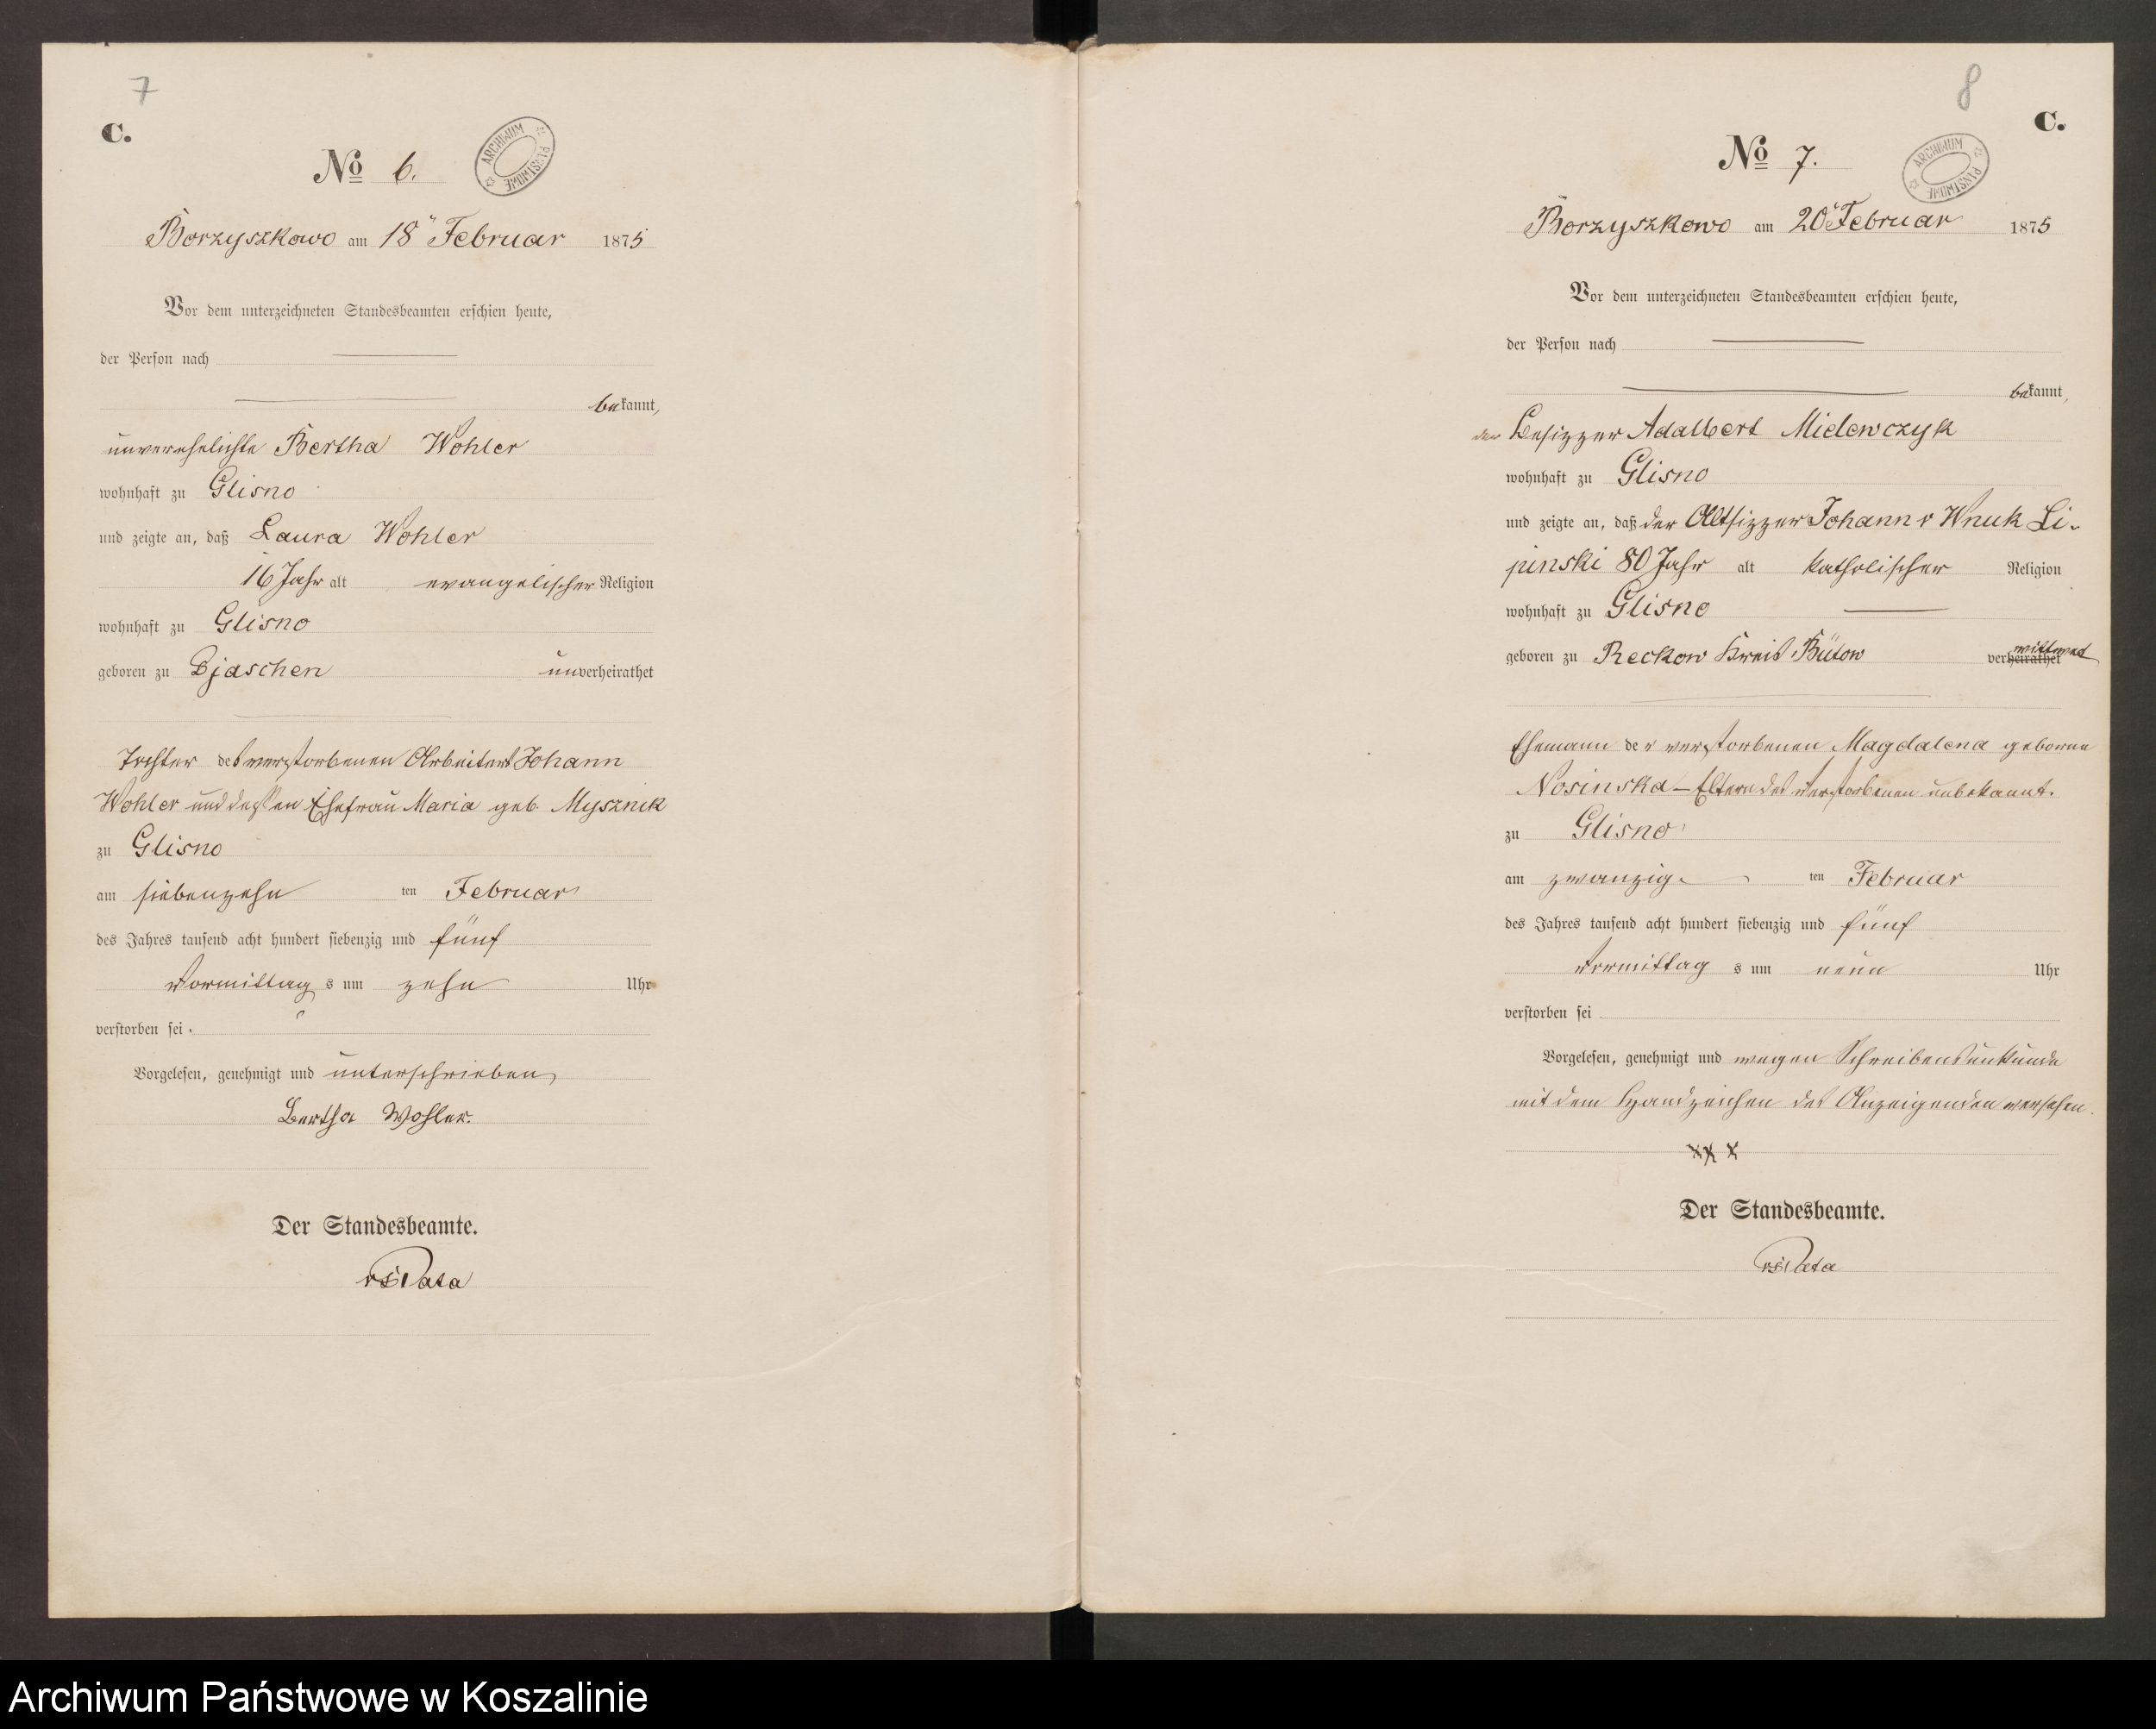 7
C.
No 6.
ARCHIWUM PAŃSTWOWE
Borzyszkowo am 18ⁿ Februar 1875
Vor dem unterzeichneten Standesbeamten erschien heute,
der Person nach
bekannt,
unverehelichte Bertha Wohler
wohnhaft zu Glisno
und zeigte an, daß Laura Wohler
16 Jahr alt evangelischer Religion
wohnhaft zu Glisno
geboren zu Djaschen unverheirathet
Tochter des verstorbenen Arbeiters Johann
Wohler und dessen Ehefrau Maria geb. Mysznik
zu Glisno
am siebenzehn ten Februar
des Jahres tausend acht hundert siebenzig und fünf
vormittag s um zehn Uhr
verstorben sei.
Vorgelesen, genehmigt und unterschrieben
Bertha Wohler.
Der Standesbeamte.
8
C.
No 7.
ARCHIWUM PAŃSTWOWE
Borzyszkowo am 20ⁿ Februar 1875
Vor dem unterzeichneten Standesbeamten erschien heute,
der Person nach
bekannt,
der Besizzer Adalbert Mielewczyk
wohnhaft zu Glisno
und zeigte an, daß der Altsizzer Johann v Wnuk Li-
pinski 80 Jahr alt katholischer Religion
wohnhaft zu Glisno
geboren zu Reckow Kreis Bütow verheirathet wittwet
Ehemann der verstorbenen Magdalena geborne
Nosinska – Eltern des verstorbenen unbekannt.
zu Glisno
am zwanzig ten Februar
des Jahres tausend acht hundert siebenzig und fünf
vormittag s um neun Uhr
verstorben sei
Vorgelesen, genehmigt und wegen Schreibensunkunde
mit dem Handzeichen des Anzeigenden versehen.
xx x
Der Standesbeamte.
Archiwum Państwowe w Koszalinie